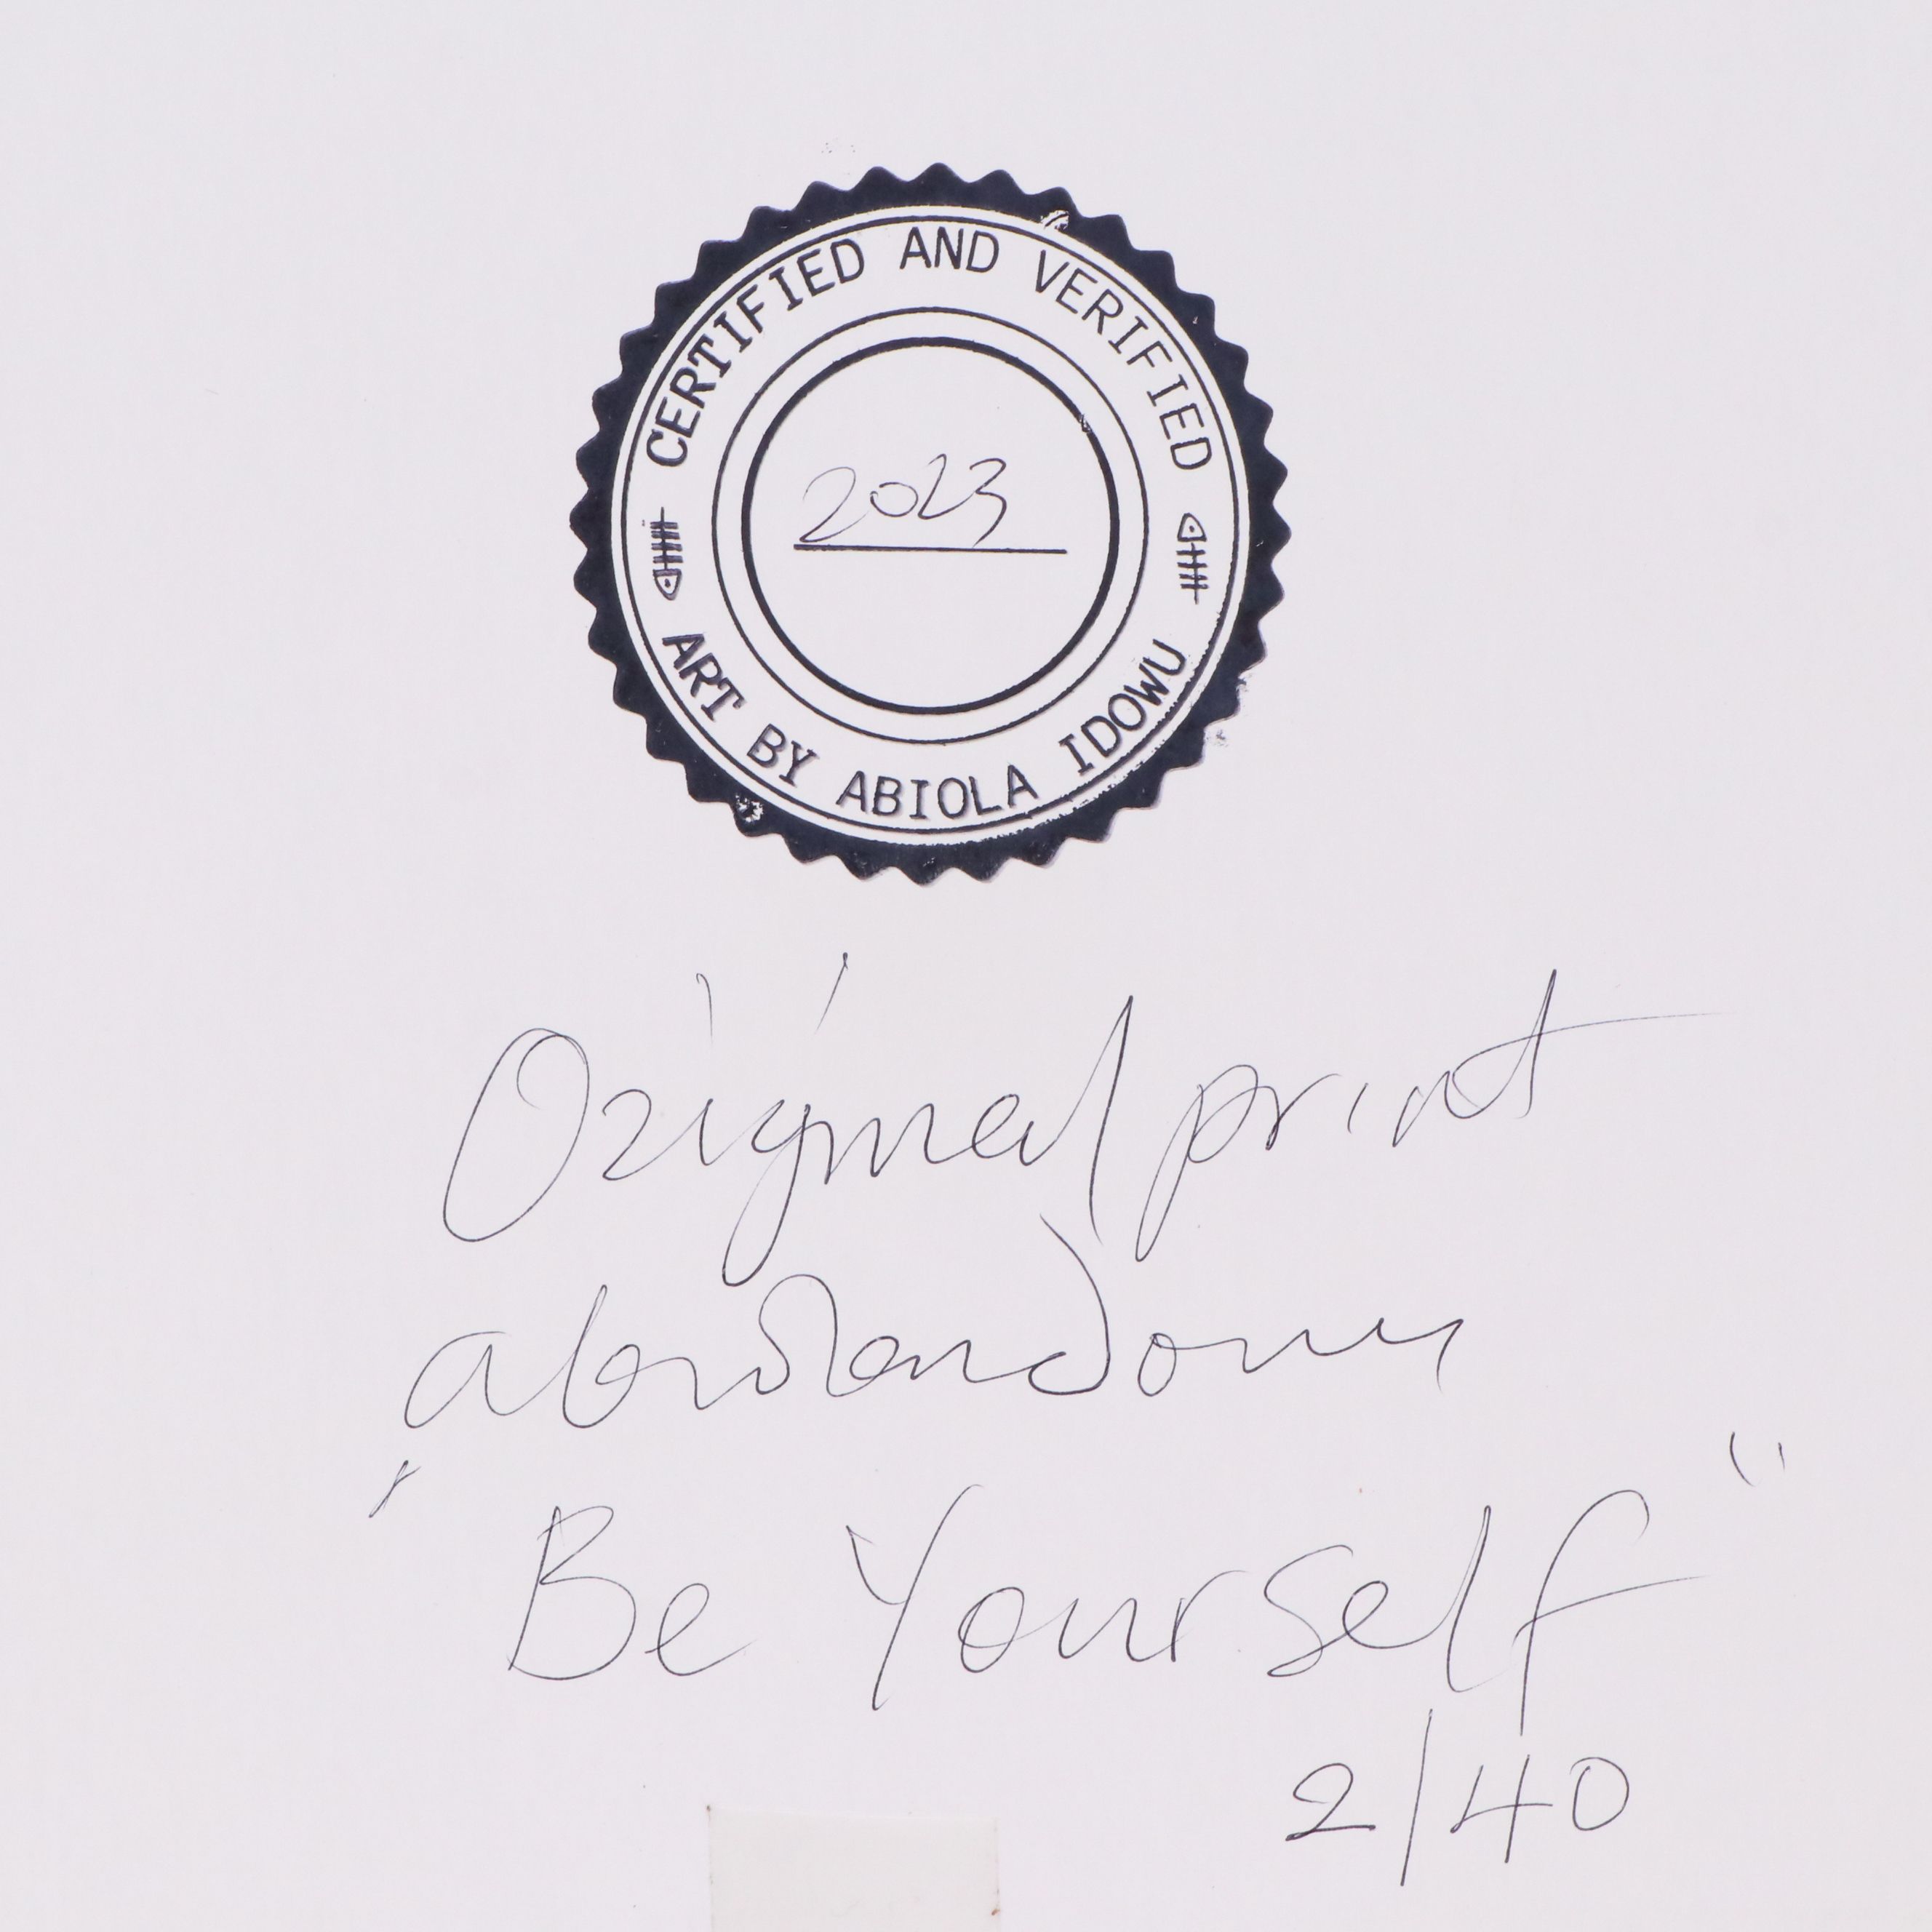 CERTIFIED AND VERIFIED
2023
ART BY ABIOLA IDOWU
Original print
"Be Yourself"
2/40